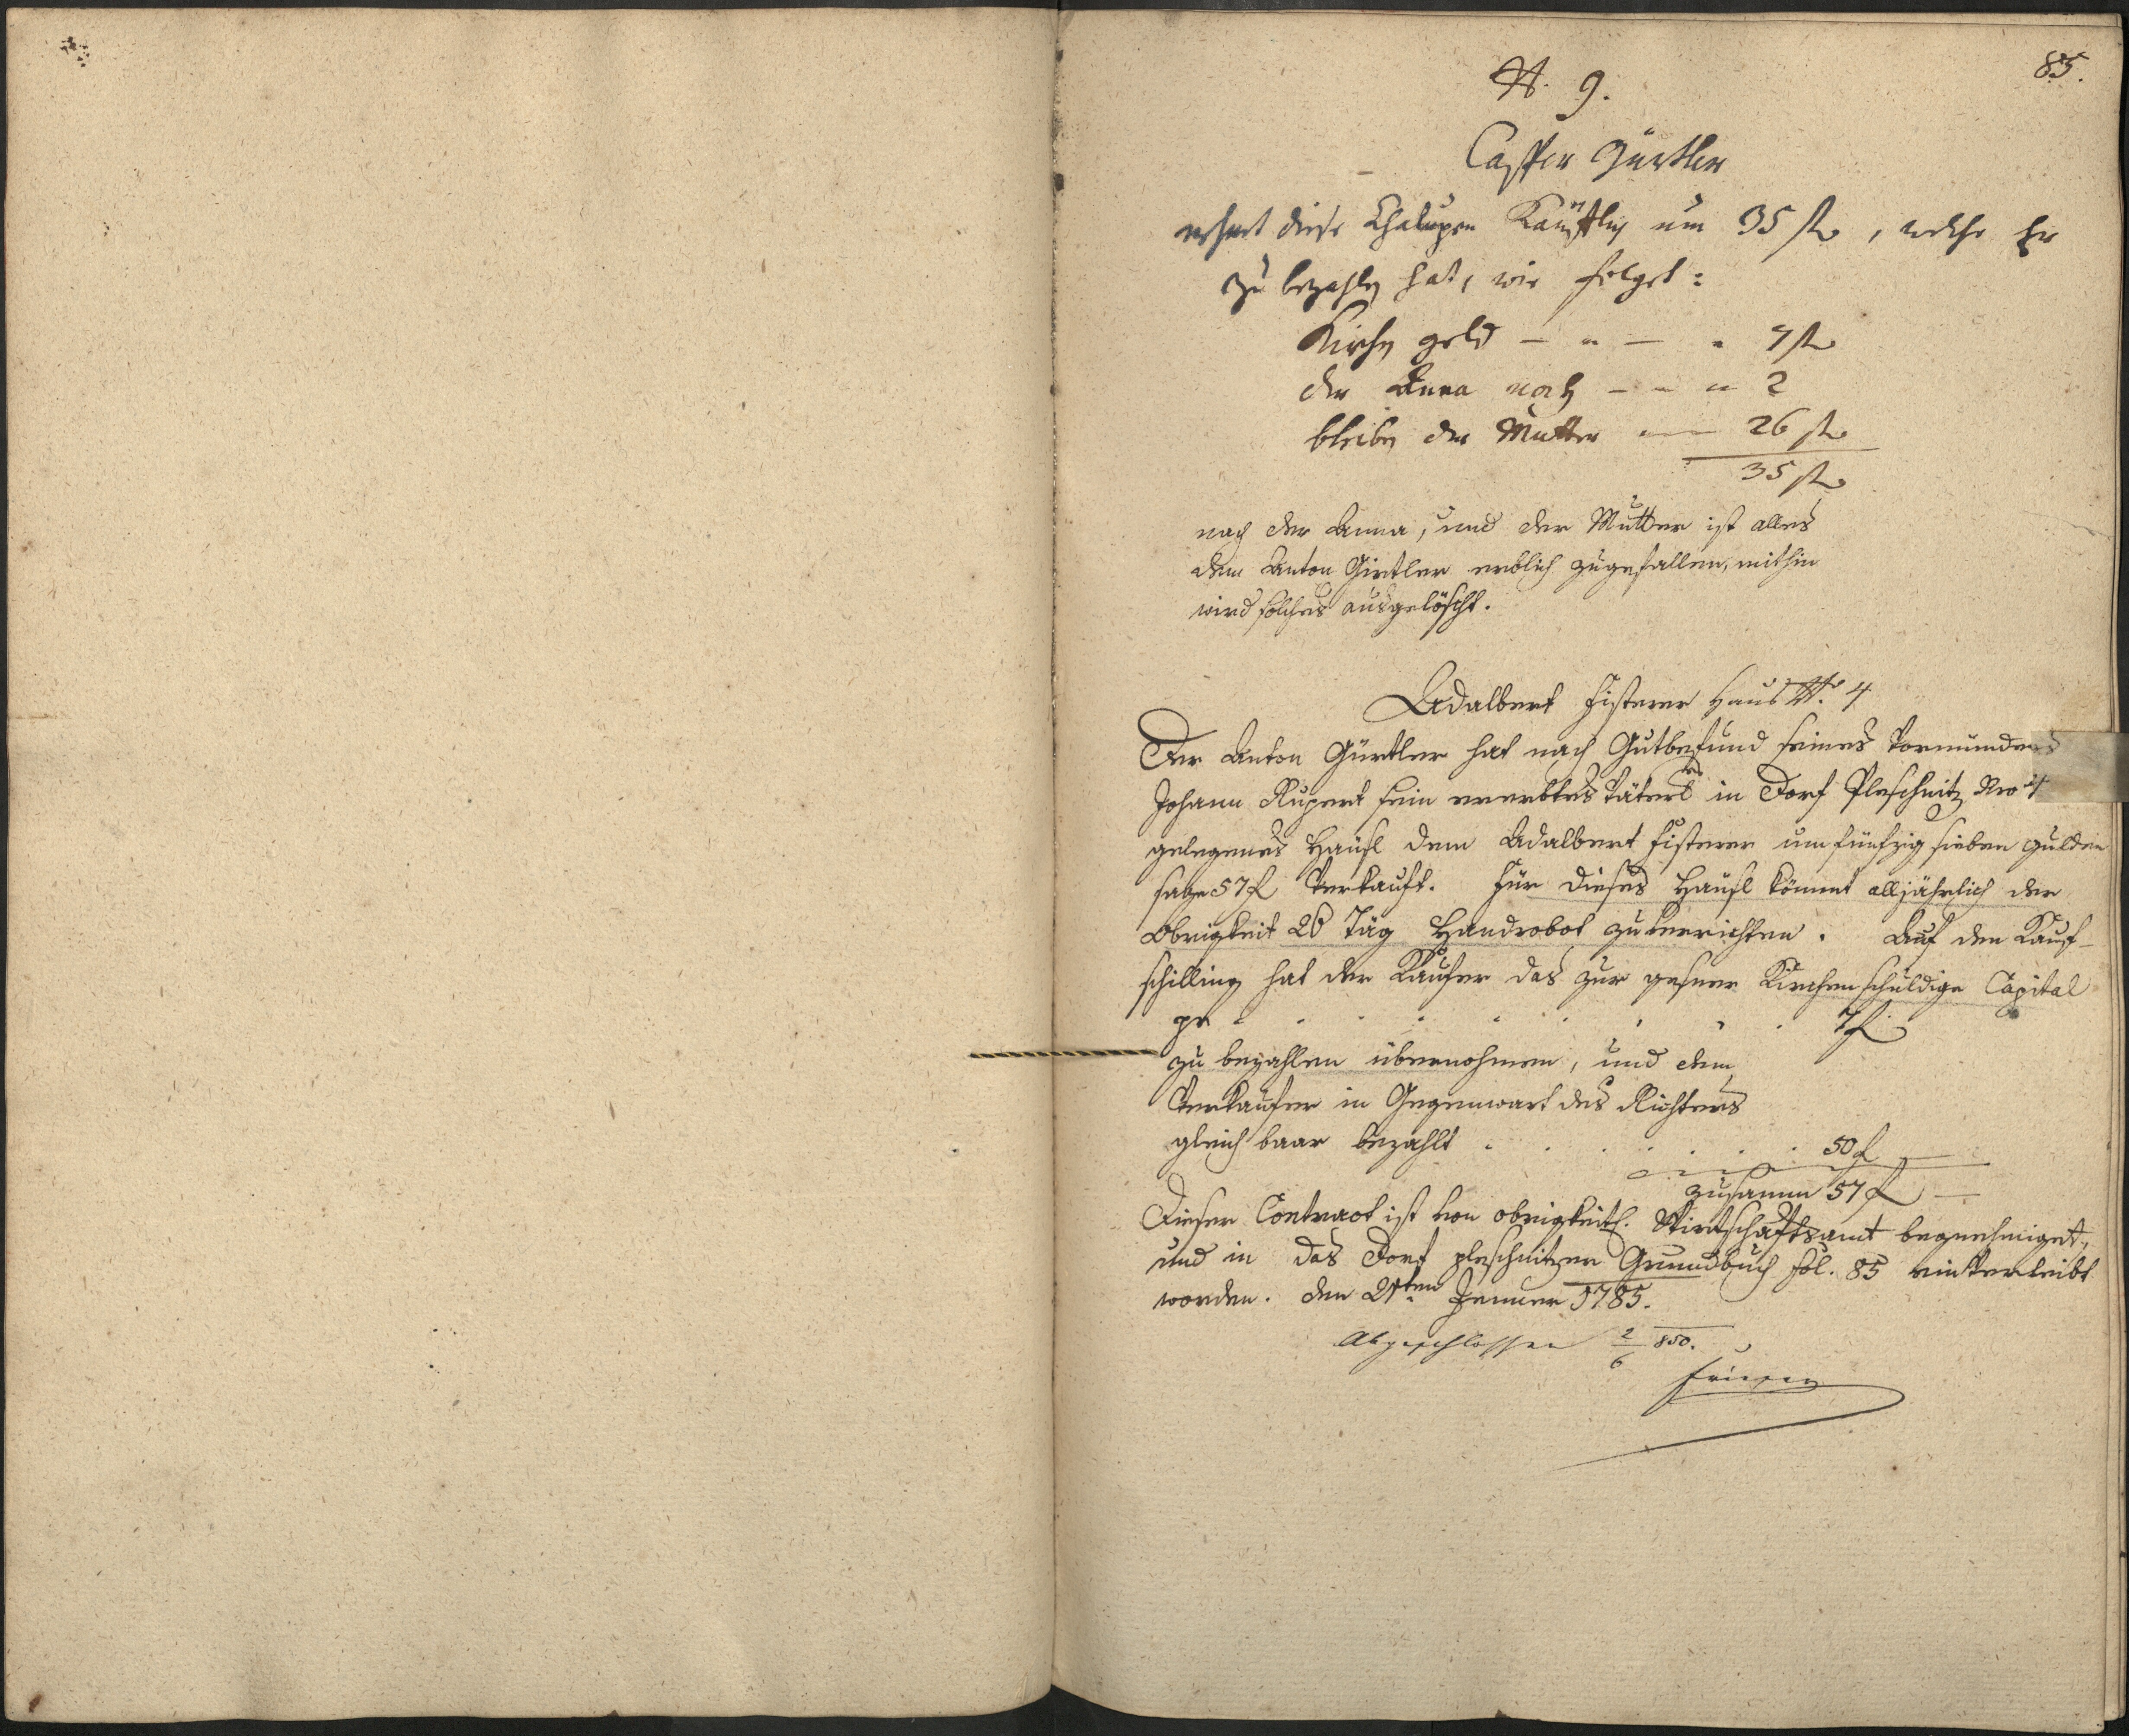 85.
N. 9.
Casper Gürtler
nehmt diese Chalupen Kaüfflig um 35 fl, welche Er
zu bezahlen hat, wie folget:
Kirchen geld — " — " 7 fl
der Anna noch — — " 2
bleiben der Mutter — 26 fl
35 fl
nach der Anna, und der Mutter ist alles
dem Anton Girtler erblich zugefallen, mithin
wird solches ausgelöscht.
Adalbert Fisterer Haus No. 4
Der Anton Gürtler hat nach Gutbefund seines Vormunders
Johann Rupert sein ererbtes Väterl in Dorf Pleschnitz Nro 4
gelegenes Häusl dem Adalbert Fisterer um fünfzig sieben gulden
sage 57 f verkauft. Für dieses Häusl kömmt alljährlich der
Obrigkeit 26 Täg Handrobot zu verrichten. Auf den Kauf-
schilling hat der Käufer das zur Kirchen schuldige Capital
pr . . . . . . . . 7 f
zu bezahlen übernohmen, und dem
Verkaüfer in Gegenwart des Richters
gleich baar bezahlt . . . . . 50 f —
zusamm 57 f —
Dieser Contract ist von obrigkeitl. Wirtschaftsamt begnehmiget,
und in das Dorf pleschnitzer Grundbuch fol. 85 einverleibt
worden. den 21ten Jenner 1785.
Abgeschlossen 2/6 850.